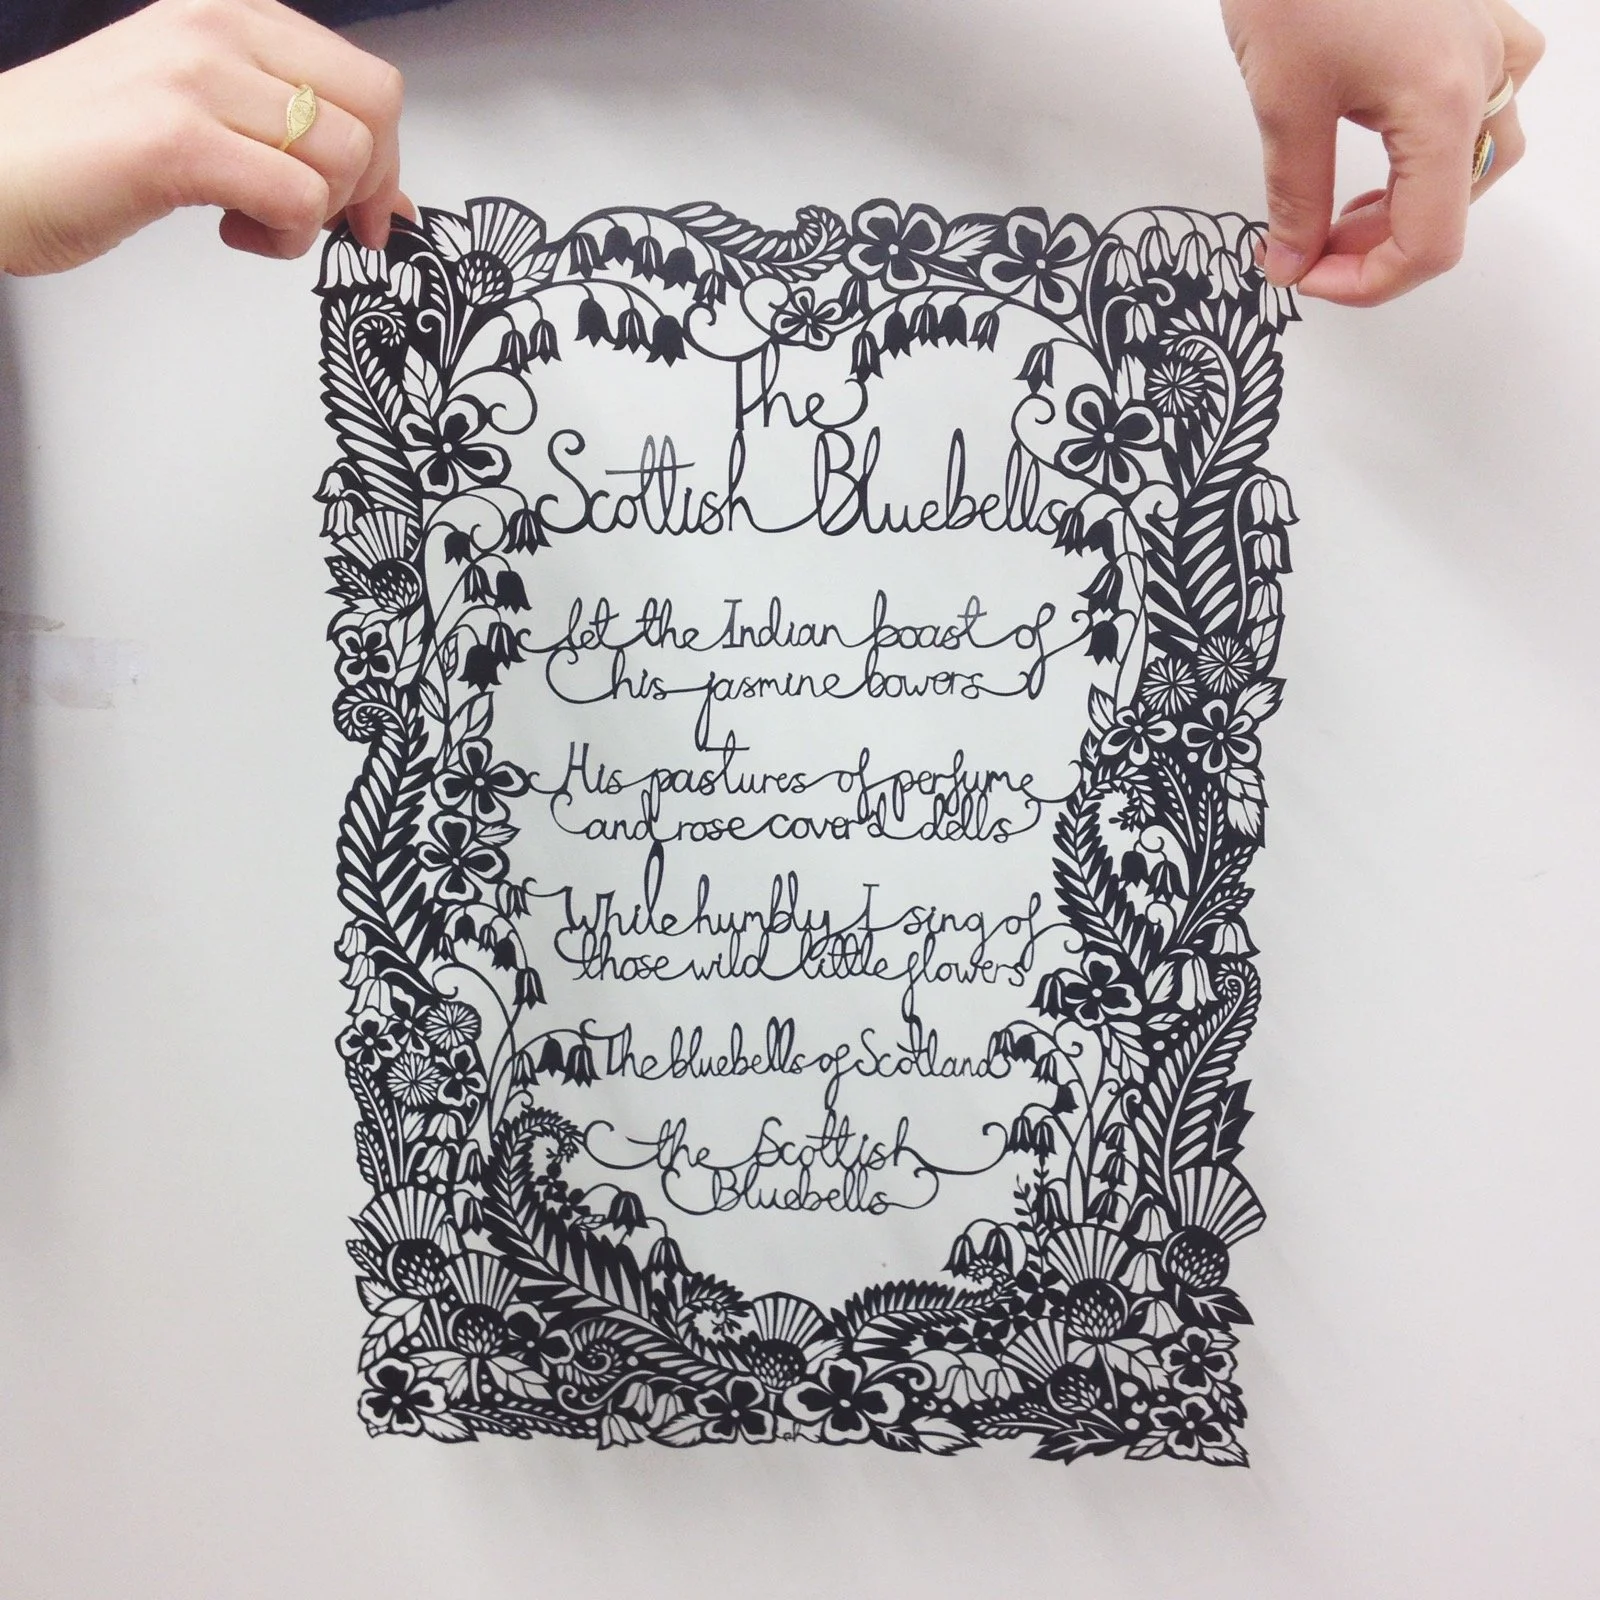 The
Scottish Bluebells
Let the Indian boast of
his jasmine bowers
His pastures of perfume
and rose cover'd dells
While humbly I sing of
those wild little flowers
The bluebells of Scotland
the Scottish
Bluebells